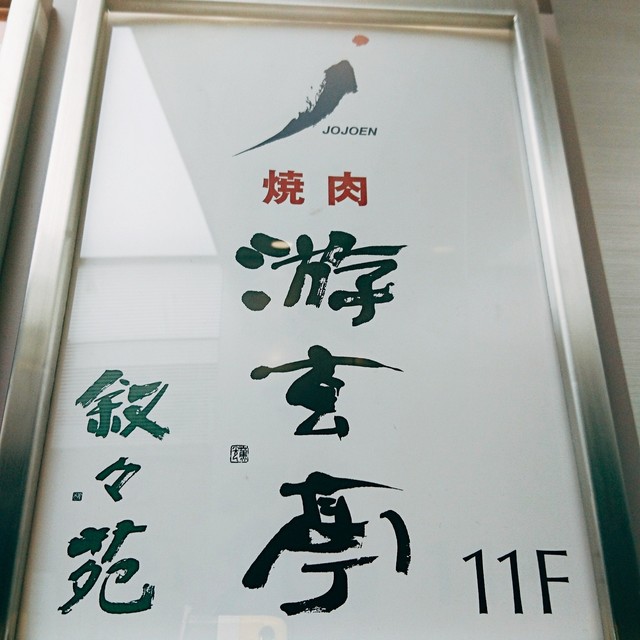 JOJOEN
焼肉
游玄亭
叙々苑
11F